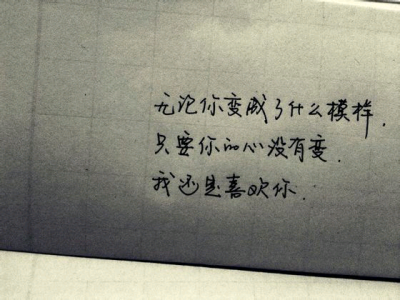 无论你变成了什么模样.
只要你的心没有变.
我还是喜欢你.